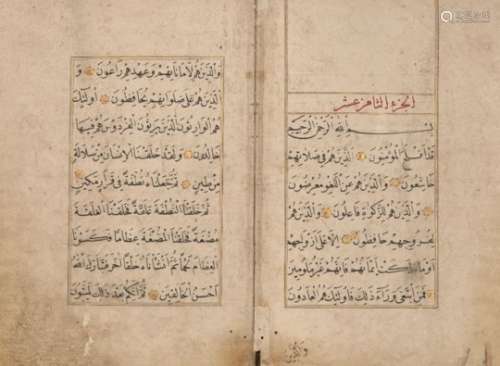 الجزء الثامن عشر
بسم الله الرحمن الرحيم
قد أفلح المؤمنون الذين هم في صلاتهم
خاشعون والذين هم عن اللغو معرضون
والذين هم للزكوة فاعلون والذين هم
لفروجهم حافظون الا على ازواجهم
او ما ملكت ايمانهم فانهم غير ملومين
فمن ابتغى وراء ذلك فاولئك هم العادون
والذين
والذين هم لاماناتهم وعهدهم راعون و
الذين هم على صلواتهم يحافظون اولئك
هم الوارثون الذين يرثون الفردوس هم فيها
خالدون ولقد خلقنا الانسان من سلالة
من طين ثم جعلناه نطفة في قرار مكين
ثم خلقنا النطفة علقة فخلقنا العلقة
مضغة فخلقنا المضغة عظاما فكسونا
العظام لحما ثم انشاناه خلقا اخر فتبارك الله
احسن الخالقين ثم انكم بعد ذلك لميتون